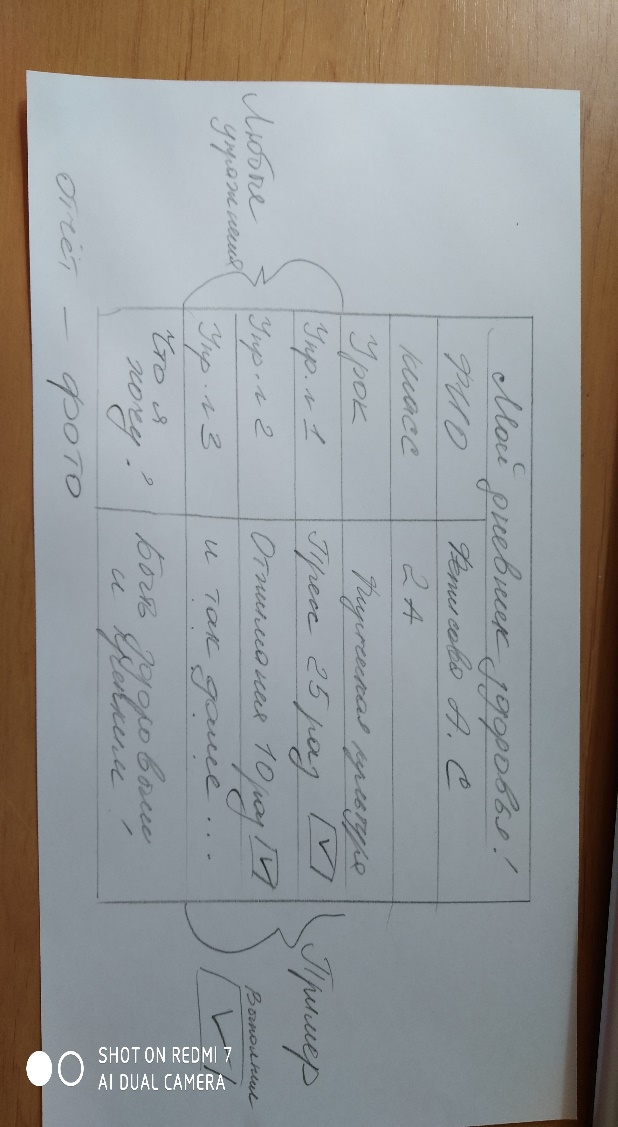 Мой дневник здоровья!
ФИО Фетисова А. С
класс 2 А
Урок Физическая культура
Упр. №1 Пресс 25 раз
Упр. №2 Отжимания 10 раз
Упр. №3 и так далее...
Что я
хочу? Быть здоровым
и крепким!
Любые
упражнения
Пример
Выполнил
Отчёт — фото
SHOT ON REDMI 7
AI DUAL CAMERA